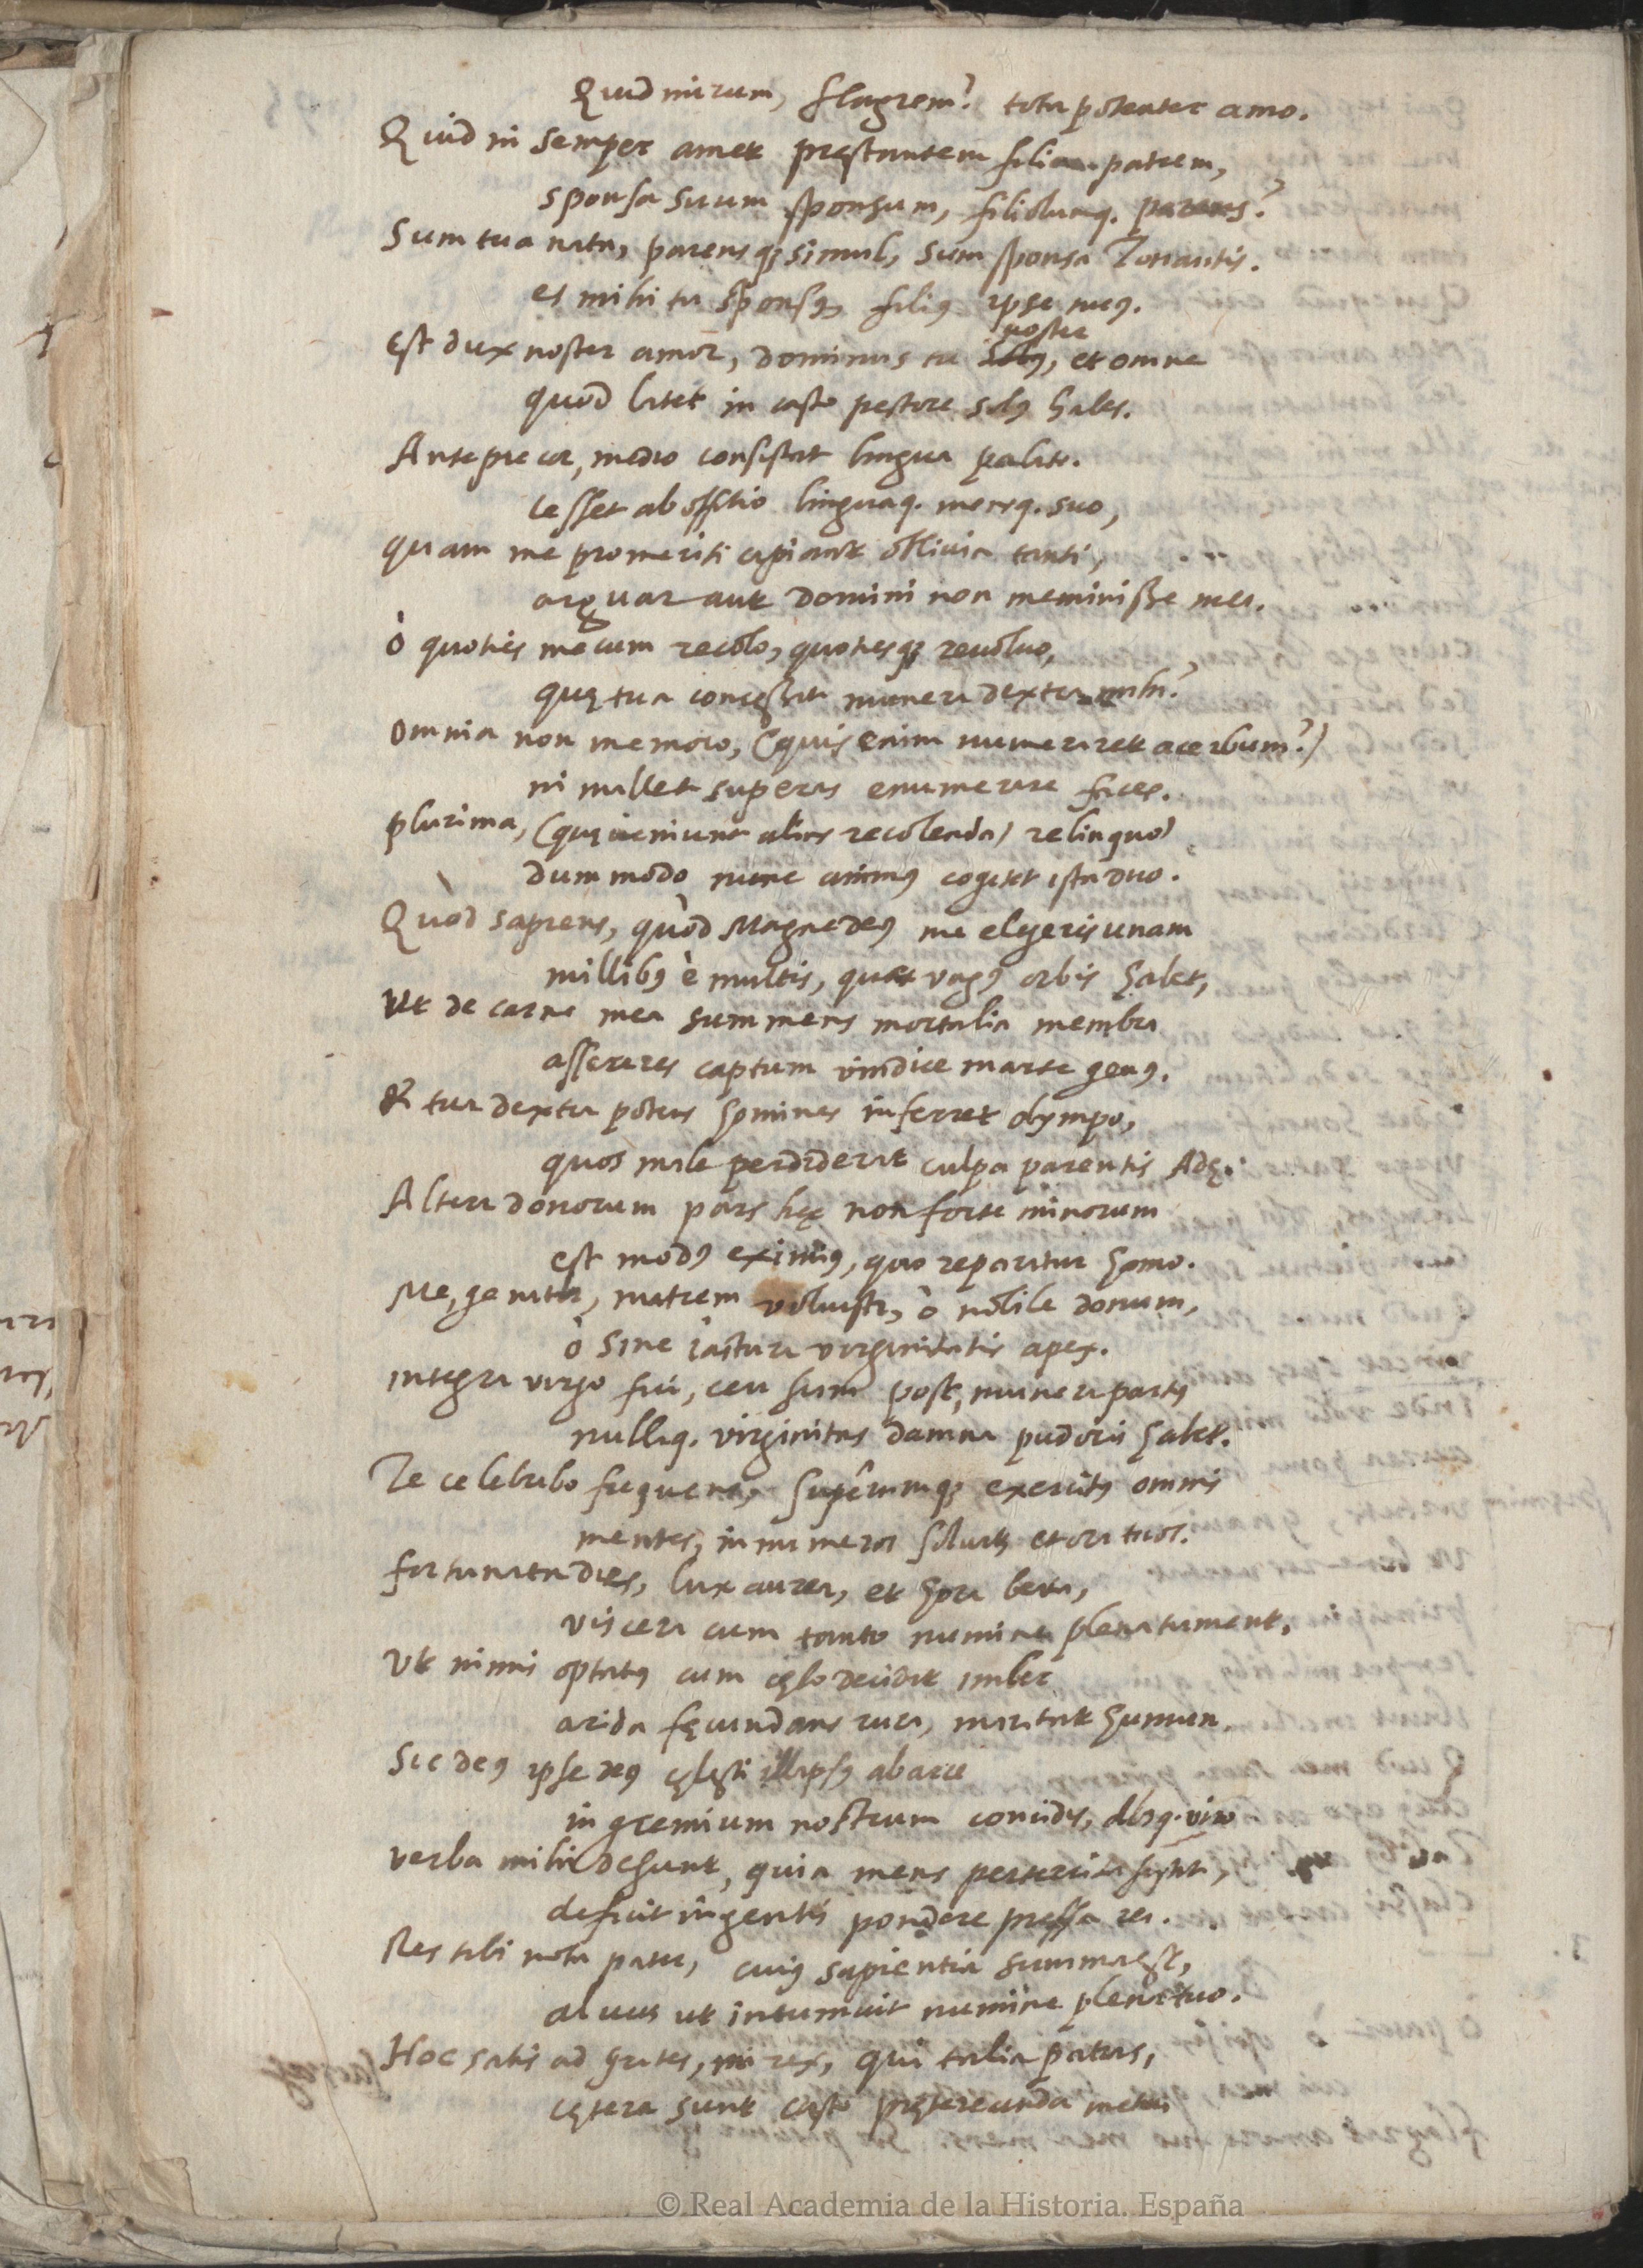 Quid mirum, flagrem? tota potenter amo.
Quid ni semper amet pręstantem filia patrem,
sponsa suum sponsum, filiolumq. parens?
Sum tua nata, parens q; simul, sum sponsa Tonantis.
es mihi tu sponsus, filius ipse meus.
est dux noster amor, dominus tu noster, et omne
quod latet in casto pectore solus habes.
Ante precor, medio consistat lingua palato.
cesset ab officio linguaq. mensq. suo,
quam me promeriti capiant oblivia tanti,
arguar aut domini non meminisse mei.
ò quoties mecum recolo, quotiesq; revolvo,
quę tua concessit munera dextra mihi?
omnia non memoro, (quis enim numeraret acerbum?)
ni mallet superas enumerare faces.
plurima, (quę veniunt alias recolenda) relinquo
dummodo nunc animus cogitet ista duo.
Quòd sapiens, quòd Magne deus me elegeris unam
millibus è multis, quas vagus orbis habet,
Ut de carne mea summens mortalia membra
assereres captum vindice marte genus.
& tua dextra potens homines inferret olympo,
quos male perdiderat culpa parentis Adę.
Altera donorum pars hęc non forte minorum
est modus eximius, quo reparatur homo.
Me, genitor, matrem voluisti, ò nobile donum,
ò sine iactura virginitatis apex.
integra virgo fui, ceu sum post, munera partus
nullaq. virginitas damna pudoris habet.
Te celebrabo frequens, superumq; exercitus omnis
mentes, in numeros solvat et ora tuos.
fortunata dies, lux aurea, et hora beata,
viscera cum tanto numine plena tument.
Ut nimis optatus cum cęlo decidit imber
arida fęcundans rura, maritat humum.
Sic deus ipse meus cęlesti illapsus ab arce
in gremium nostrum concidis, absq. viro
verba mihi desunt, quia mens perterrita
deficit ingentis pondere pressa rei.
Res tibi nota pater, cuius sapientia summa est,
alvus ut intumuit numine plena tuo.
Hoc satis ad grates, mi rex, qui talia patras,
cętera sunt casto prętereunda metu
© Real Academia de la Historia. España